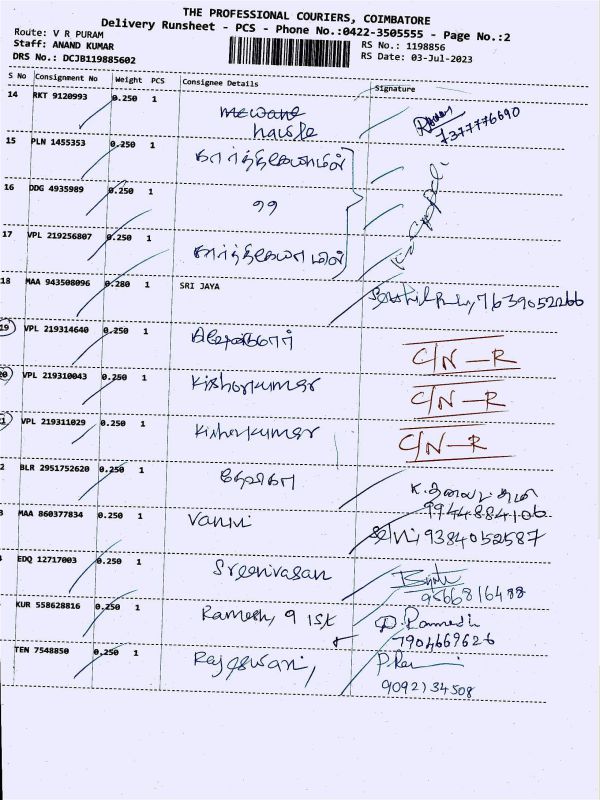 THE PROFESSIONAL COURIERS, COIMBATORE
Delivery Runsheet - PCS - Phone No.:0422-3505555 - Page No.:2
Route: V R PURAM
Staff: ANAND KUMAR
RS No.: 1198856
DRS No.: DCJB119885602
RS Date: 03-Jul-2023
S No Consignment No Weight PCS Consignee Details Signature
14 RKT 9120993 0.250 1 7377776690
15 PLN 1455353 0.250 1
16 DDG 4935989 0.250 1 "
17 VPL 219256807 0.250 1
18 MAA 943508096 0.280 1 SRI JAYA 7639052266
19 VPL 219314640 0.250 1 C/N-R
20 VPL 219310043 0.250 1 Kishorkumar C/N-R
1 VPL 219311029 0.250 1 Kishorkumar C/N-R
2 BLR 2951752620 0.250 1 9944884106
3 MAA 860377834 0.250 1 Vanivi Selvi, 9384052587
EDQ 12717003 0.250 1 Sreenivasan 9566816488
KUR 558628816 0.250 1 Ramesh, 9 1st D. Ramesh 7904669626
TEN 7548850 0.250 1 Rajeswari, 9092134508